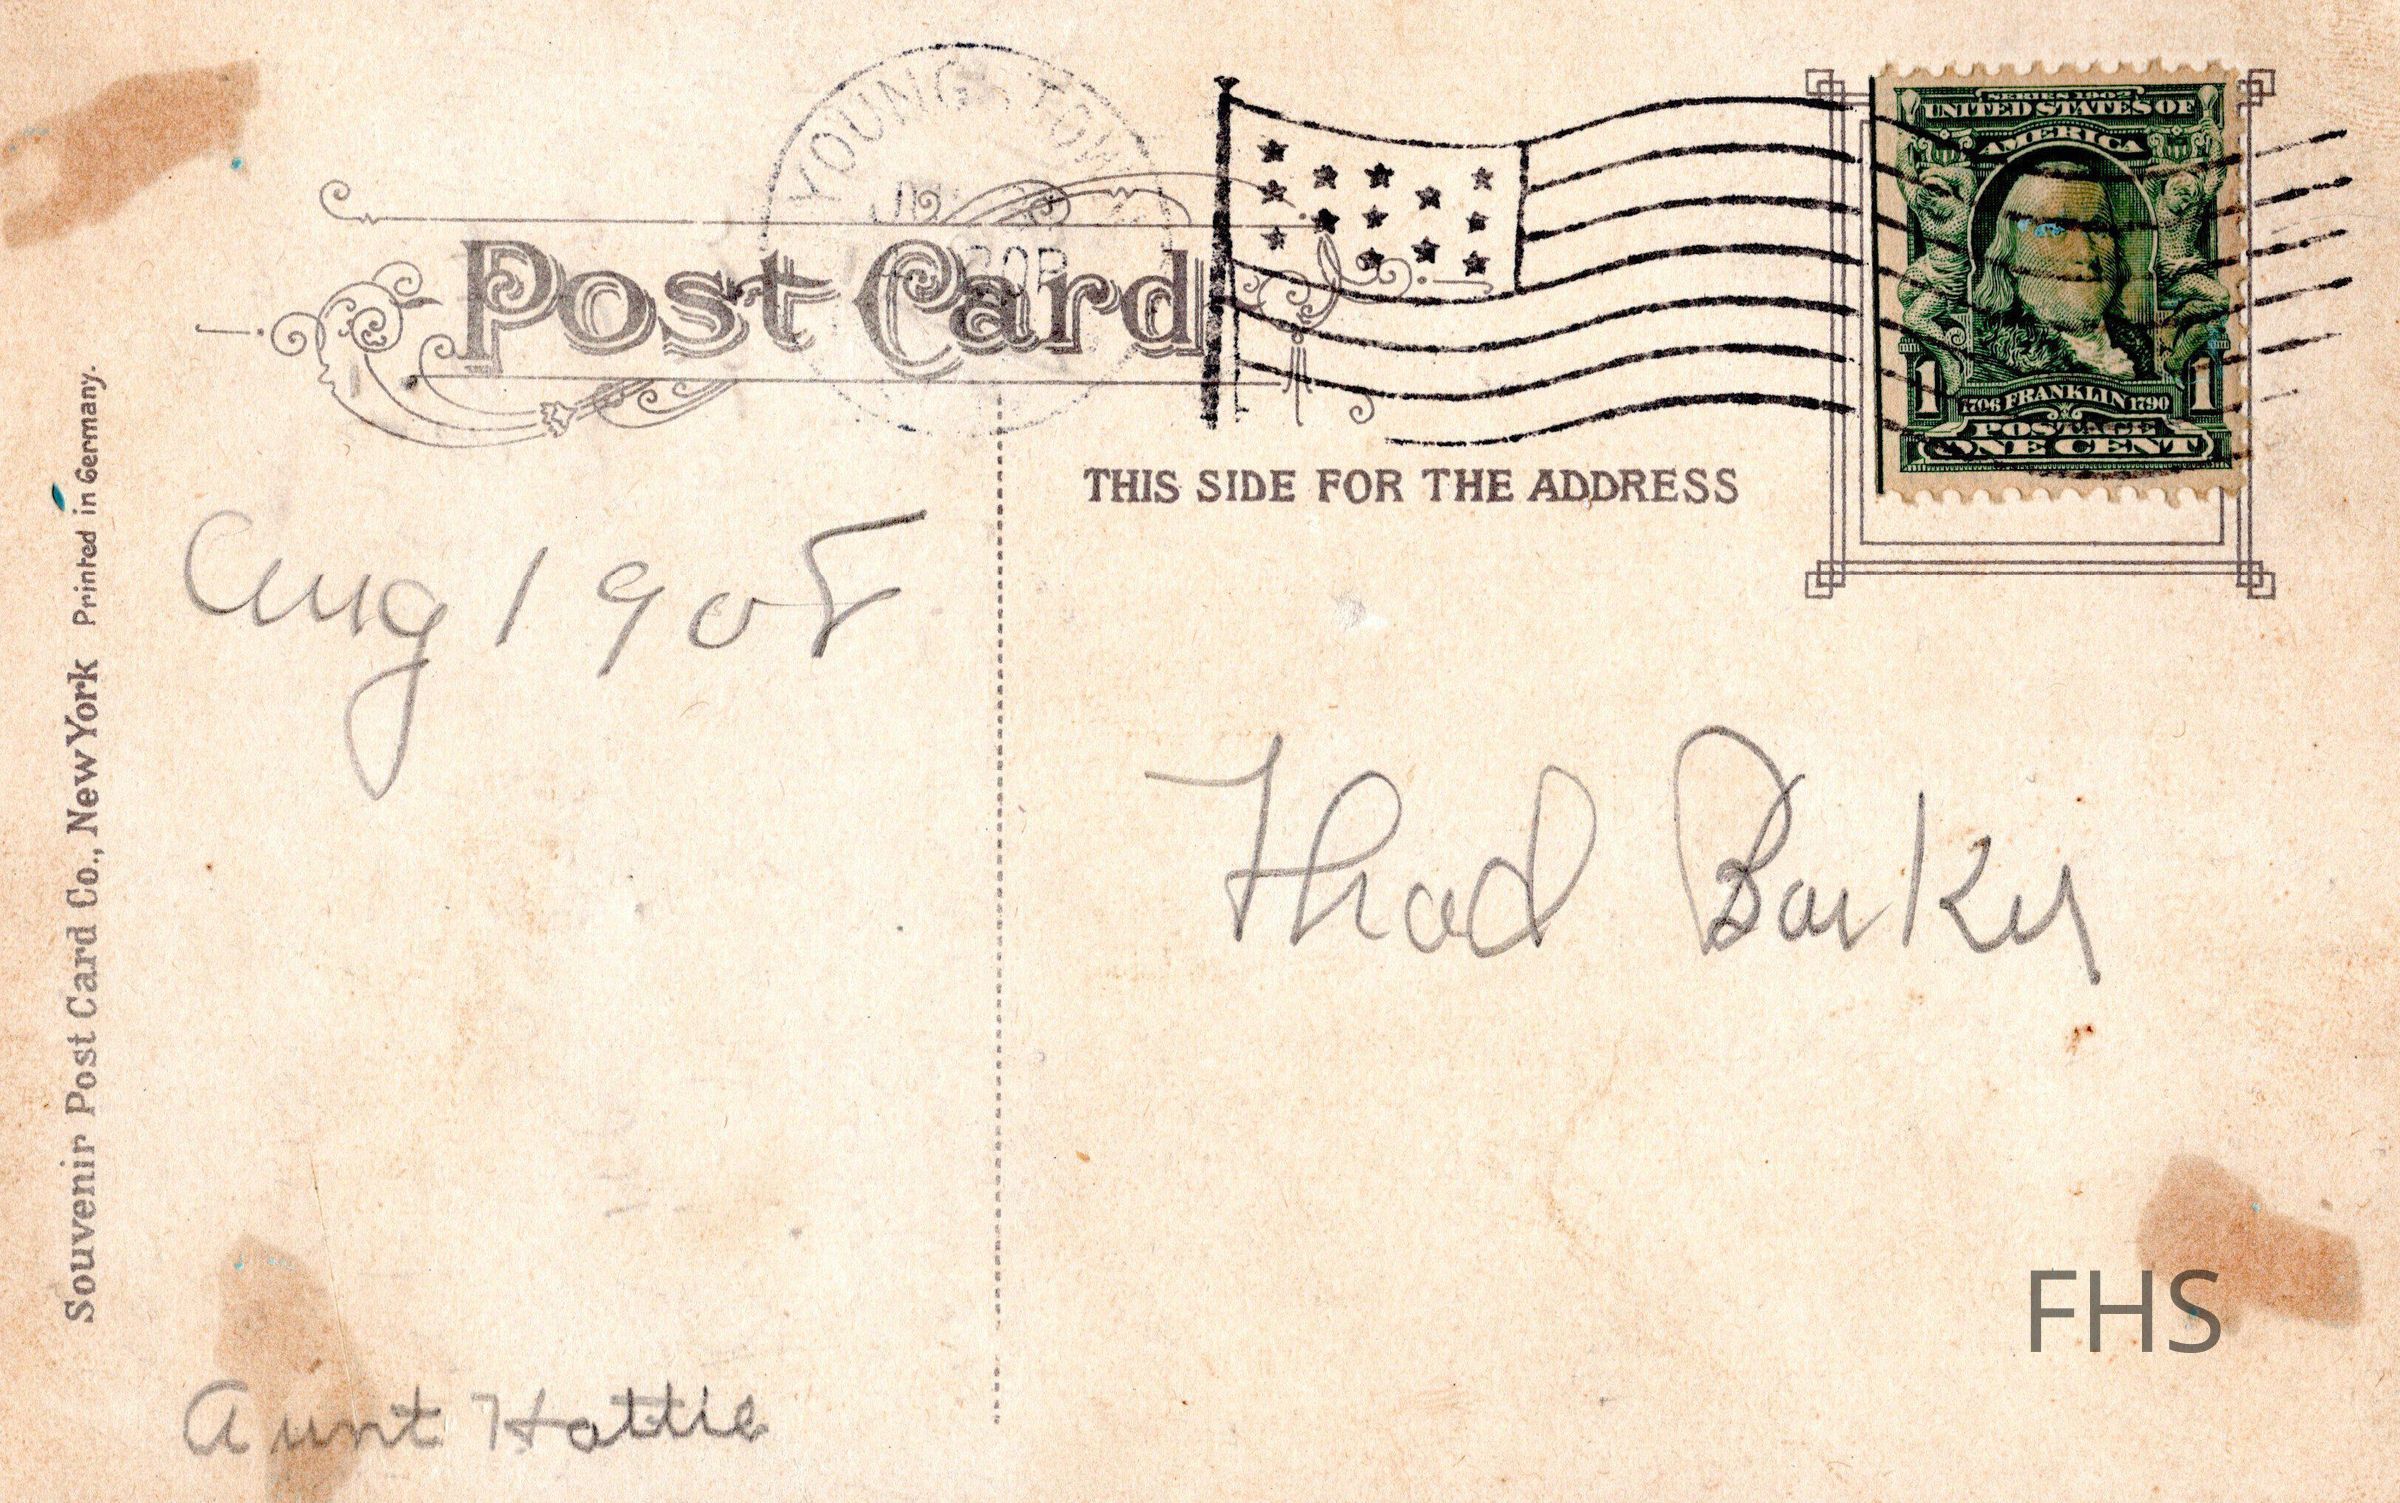 YOUNGSTOW
Post Card
SERIES 1902
UNITED STATES OF
AMERICA
1 1706 FRANKLIN 1790 1
POSTAGE
ONE CENT
THIS SIDE FOR THE ADDRESS
Aug 1908
Thad Barker
Aunt Hattie
Souvenir Post Card Co., New York Printed in Germany.
FHS